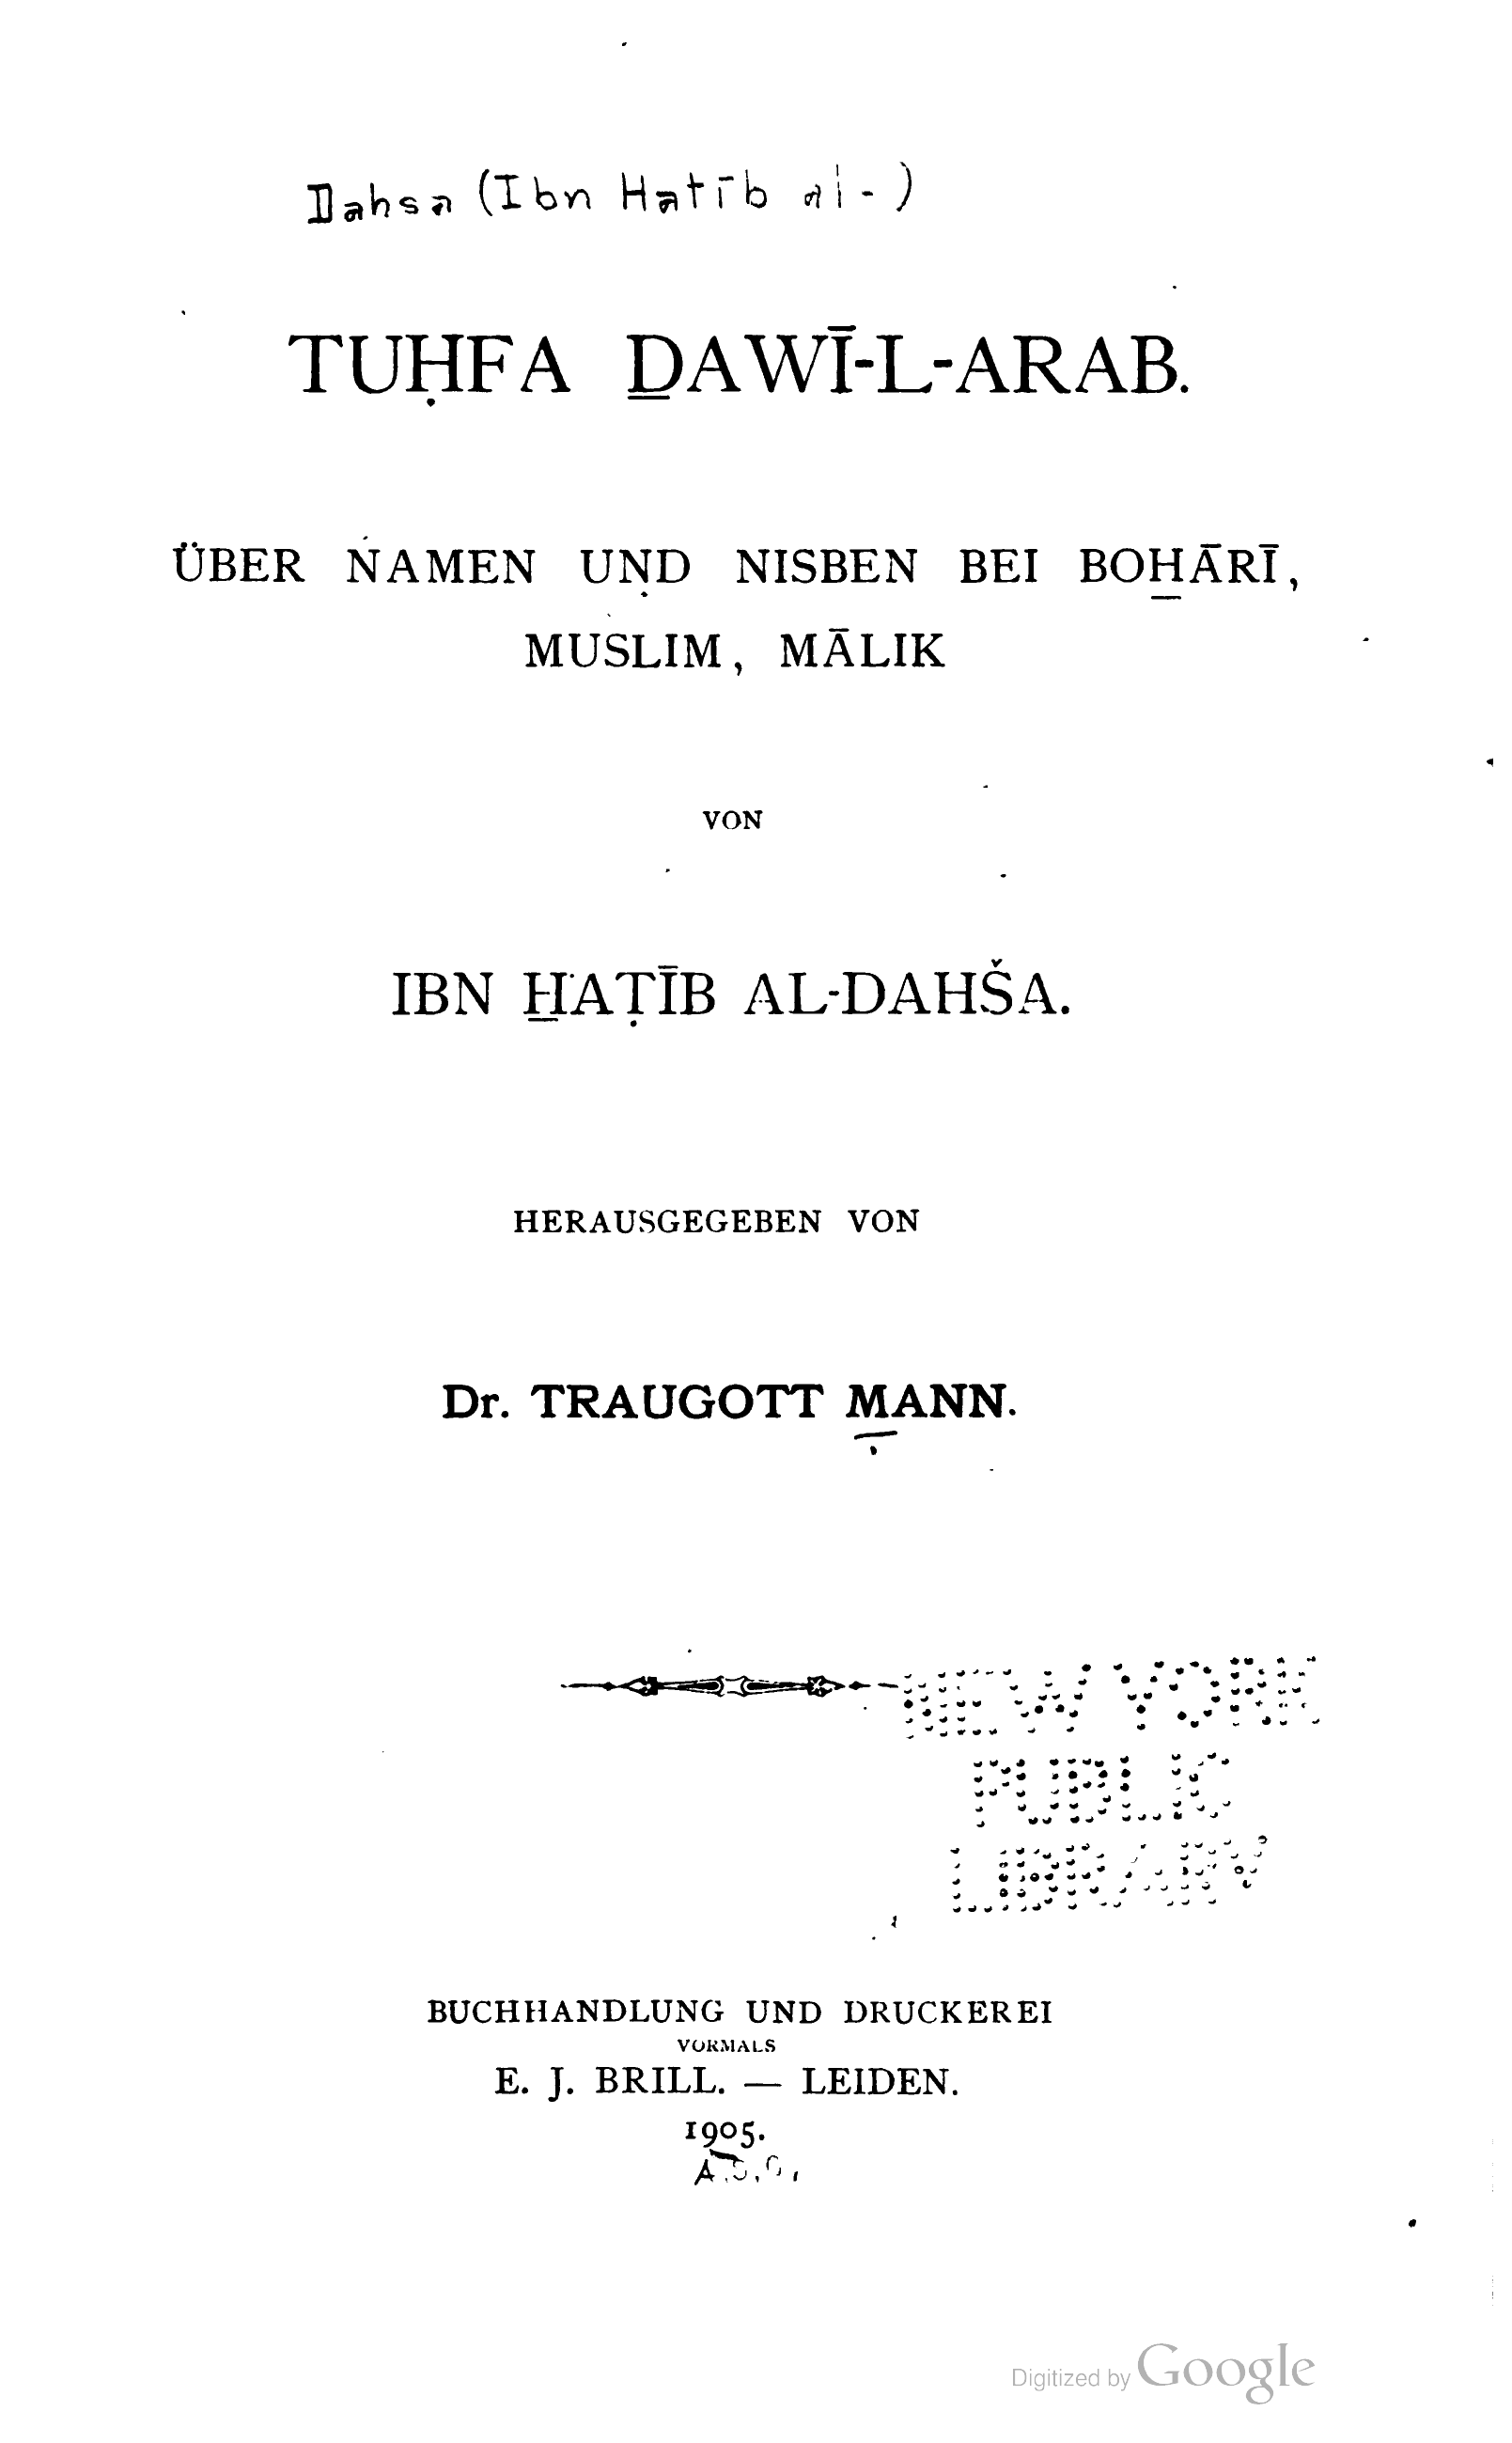 Dahsa (Ibn Hatīb al-)
TUḤFA ḎAWĪ-L-ARAB.
ÜBER NAMEN UND NISBEN BEI BOẖĀRĪ,
MUSLIM, MĀLIK
VON
IBN H̱AṬĪB AL-DAHŠA.
HERAUSGEGEBEN VON
Dr. TRAUGOTT MANN.
NEW YORK
PUBLIC
LIBRARY
BUCHHANDLUNG UND DRUCKEREI
VORMALS
E. J. BRILL. — LEIDEN.
1905.
Digitized by Google